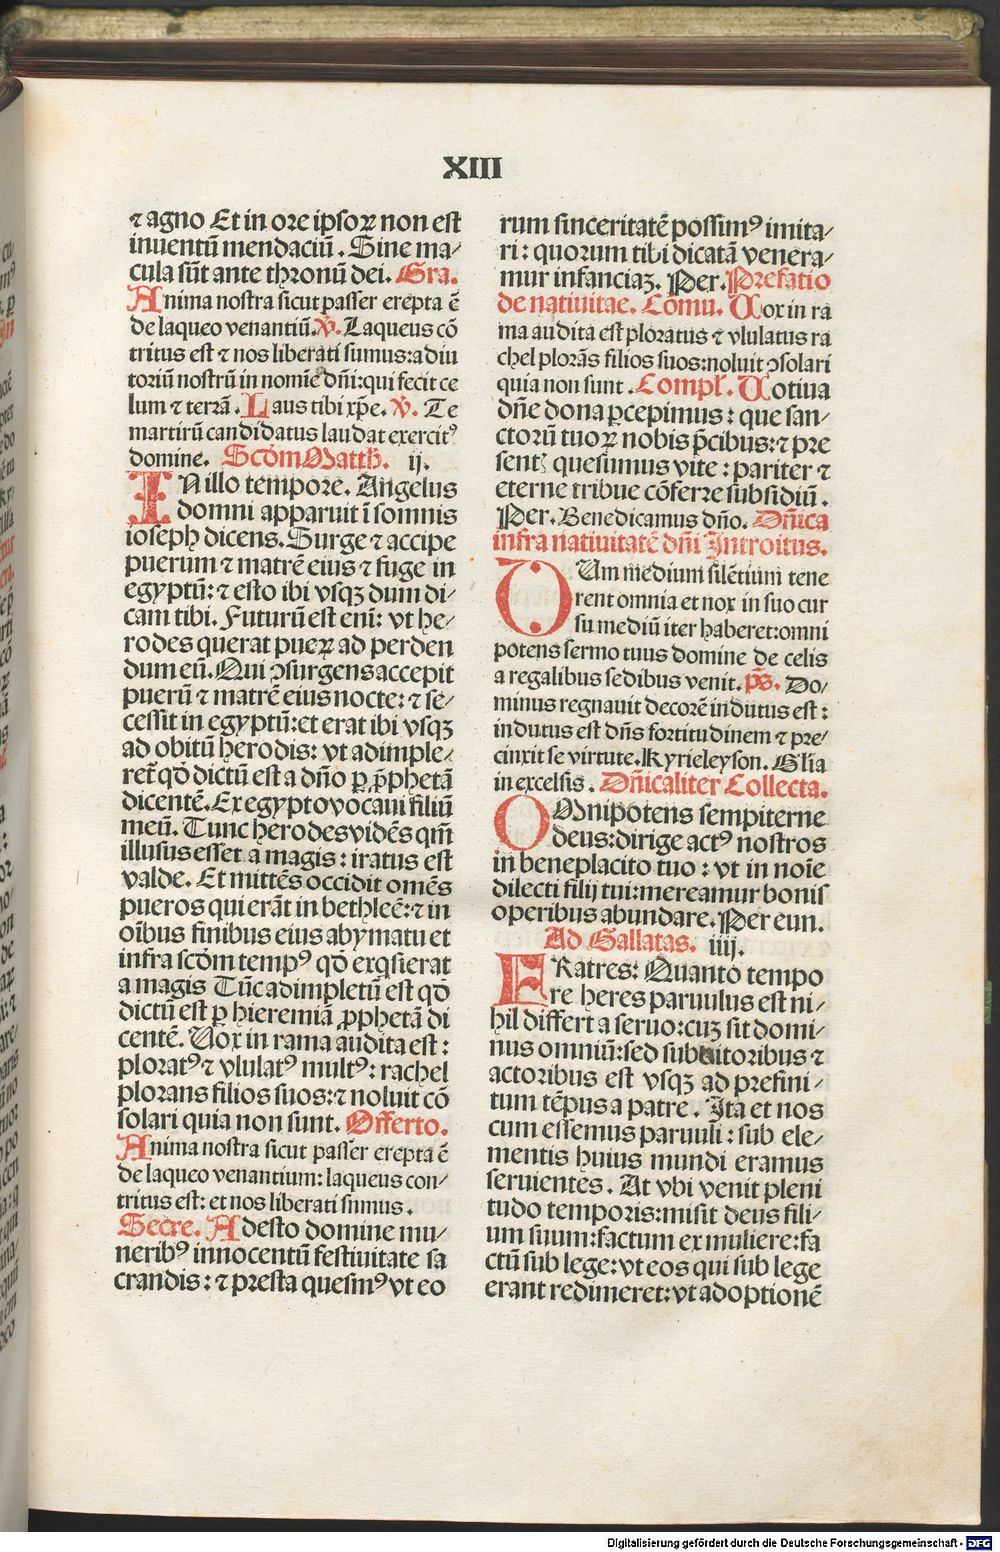 XIII
⁊ agno Et in ore ipsoꝝ non est
inuentū mendaciū. Sine ma⸗
cula sūt ante thronū dei. Gra.
Anima nostra sicut passer erepta ē
de laqueo venantiū. ℣. Laqueus cō
tritus est ⁊ nos liberati sumus:adiu
toriū nostrū in nomīe dn̄i:qui fecit ce
lum ⁊ terrā. Laus tibi xp̄e. ℣. Te
martirū candidatus laudat exercitꝰ
domine. Scd̄m Matth. ij.
IN illo tempore. Angelus
domni apparuit ī somnis
ioseph dicens. Surge ⁊ accipe
puerum ⁊ matrē eius ⁊ fuge in
egyptū: ⁊ esto ibi vsqꝫ dum di⸗
cam tibi. Futurū est eni̅: vt he⸗
rodes querat pueꝝ ad perden
dum eū. Qui ꝯsurgens accepit
puerū ⁊ matrē eius nocte: ⁊ se⸗
cessit in egyptū: et erat ibi vsqꝫ
ad obitū herodis: vt adimple⸗
ret̄ qd̄ dictū est a dn̄o ꝑ ꝓphetā
dicentē. Ex egypto vocaui filiū
meū. Tunc herodes vidēs qm̄
illusus esset a magis: iratus est
valde. Et mittēs occidit omēs
pueros qui erāt in bethleē: ⁊ in
oībus finibus eius a bymatu et
infra scd̄m tempꝰ qd̄ exq̄sierat
a magis Tūc adimpletū est qd̄
dictū est ꝑ hieremiā ꝓphetā di
centē. Vox in rama audita est:
ploratꝰ ⁊ vlulatꝰ multꝰ: rachel
plorans filios suos: ⁊ noluit cō
solari quia non sunt. Offerto.
Anima nostra sicut passer erepta ē
de laqueo venantium: laqueus con⸗
tritus est: et nos liberati sumus.
Secre. Adesto domine mu⸗
neribꝰ innocentū festiuitate sa
crandis: ⁊ presta quesmꝰ vt eo
rum sinceritatē possimꝰ imita⸗
ri: quorum tibi dicatā venera⸗
mur infanciaꝫ. Per. Prefatio
de natiuitae. Cōmu. Vox in ra
ma audita est ploratus ⁊ vlulatus ra
chel plorās filios suos:noluit ꝯsolari
quia non sunt. Compl̄. Votiua
dn̄e dona ꝑcepimus: que san⸗
ctorū tuoꝝ nobis p̄cibus: ⁊ pre
sentꝭ quesumus vite: pariter ⁊
eterne tribue cōferre subsidiū.
Per. Benedicamus dn̄o. Dn̄ica
infra natiuitatē dn̄i Introitus.
DUm medium silētium tene
rent omnia et nox in suo cur
su mediū iter haberet:omni
potens sermo tuus domine de celis
a regalibus sedibus venit. p̄s. Do⸗
minus regnauit decorē indutus est:
indutus est dn̄s fortitudinem ⁊ pre⸗
cinxit se virtute. Kyrieleyson. Gl̄ia
in excelsis. Dn̄icaliter Collecta.
OMnipotens sempiterne
deus:dirige actꝰ nostros
in beneplacito tuo: vt in noīe
dilecti filij tui:mereamur bonis
operibus abundare. Per eun.
Ad Gallatas. iiij.
FRatres: Quanto tempo
re heres paruulus est ni⸗
hil differt a seruo:cuꝫ sit domi⸗
nus omniū:sed sub tutoribus ⁊
actoribus est vsqꝫ ad prefini⸗
tum tēpus a patre. Ita et nos
cum essemus paruuli: sub ele⸗
mentis huius mundi eramus
seruientes. At vbi venit pleni
tudo temporis:misit deus fili⸗
um suum:factum ex muliere:fa
ctū sub lege:vt eos qui sub lege
erant redimeret:vt adoptionē
Digitalisierung gefördert durch die Deutsche Forschungsgemeinschaft - DFG